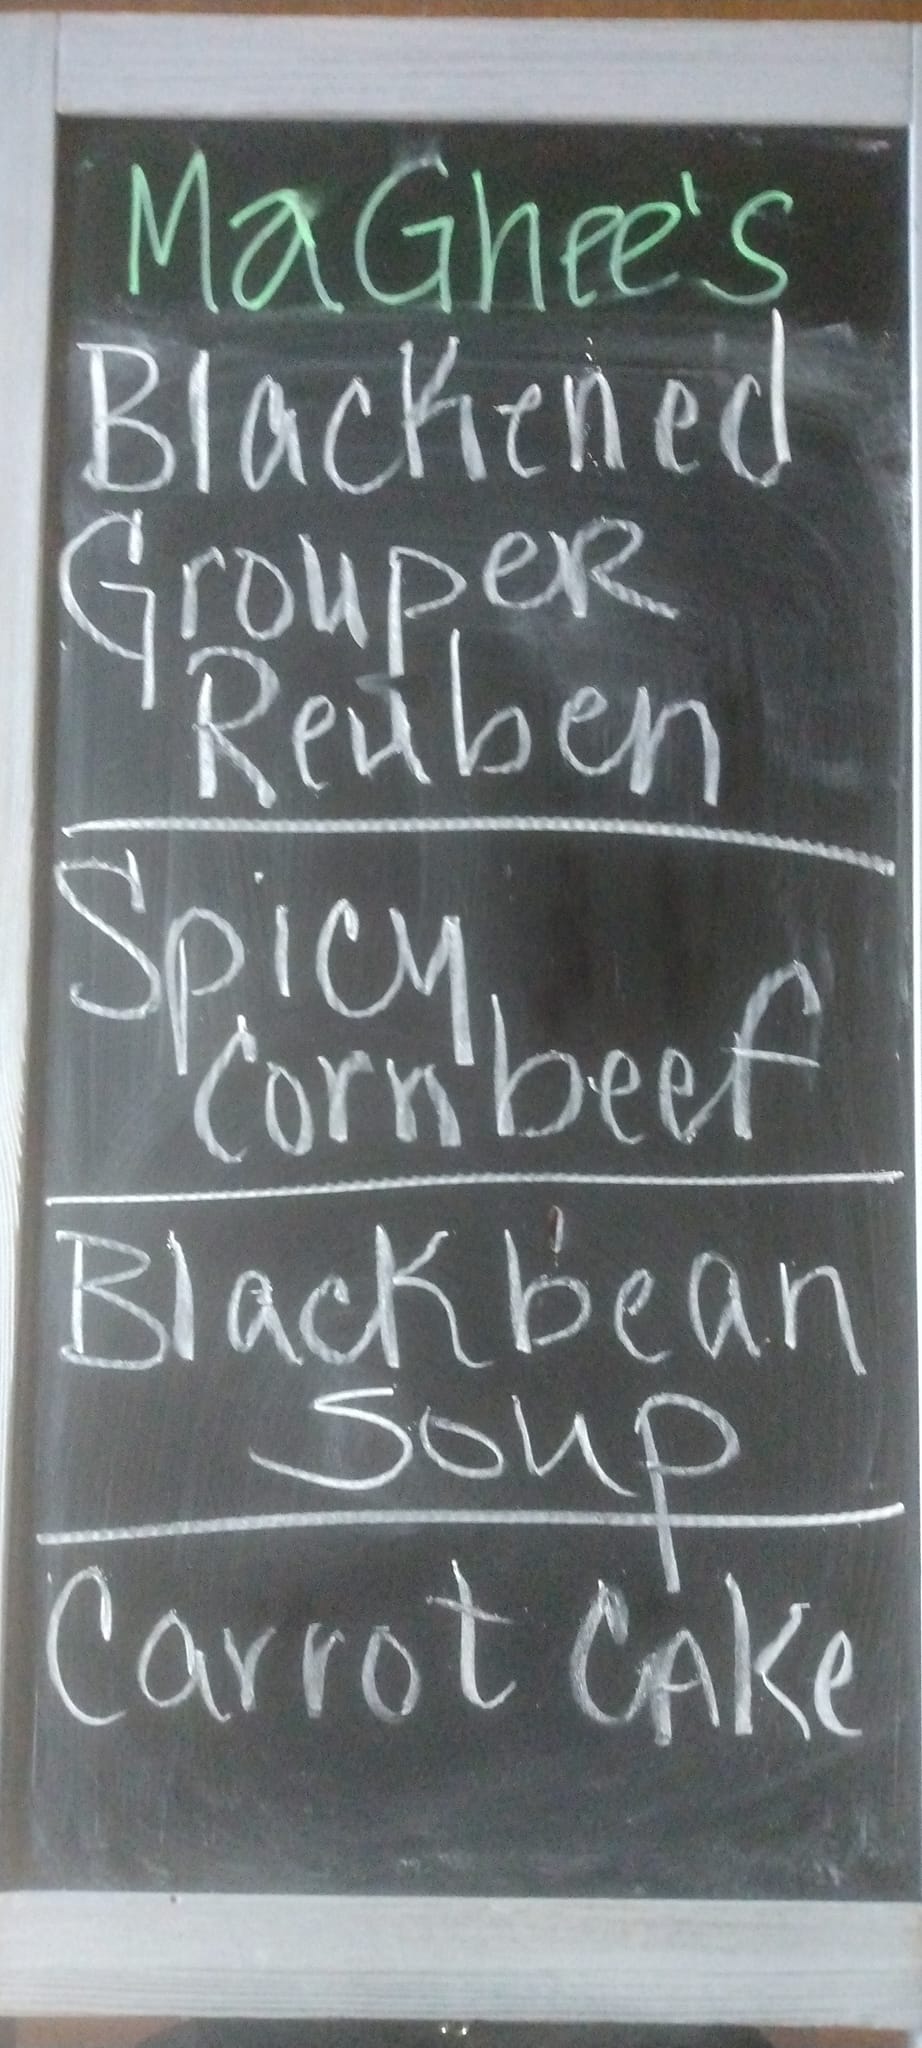 MaGhee's
Blackened
Grouper
Reuben
Spicy
Cornbeef
Blackbean
Soup
Carrot CAKe